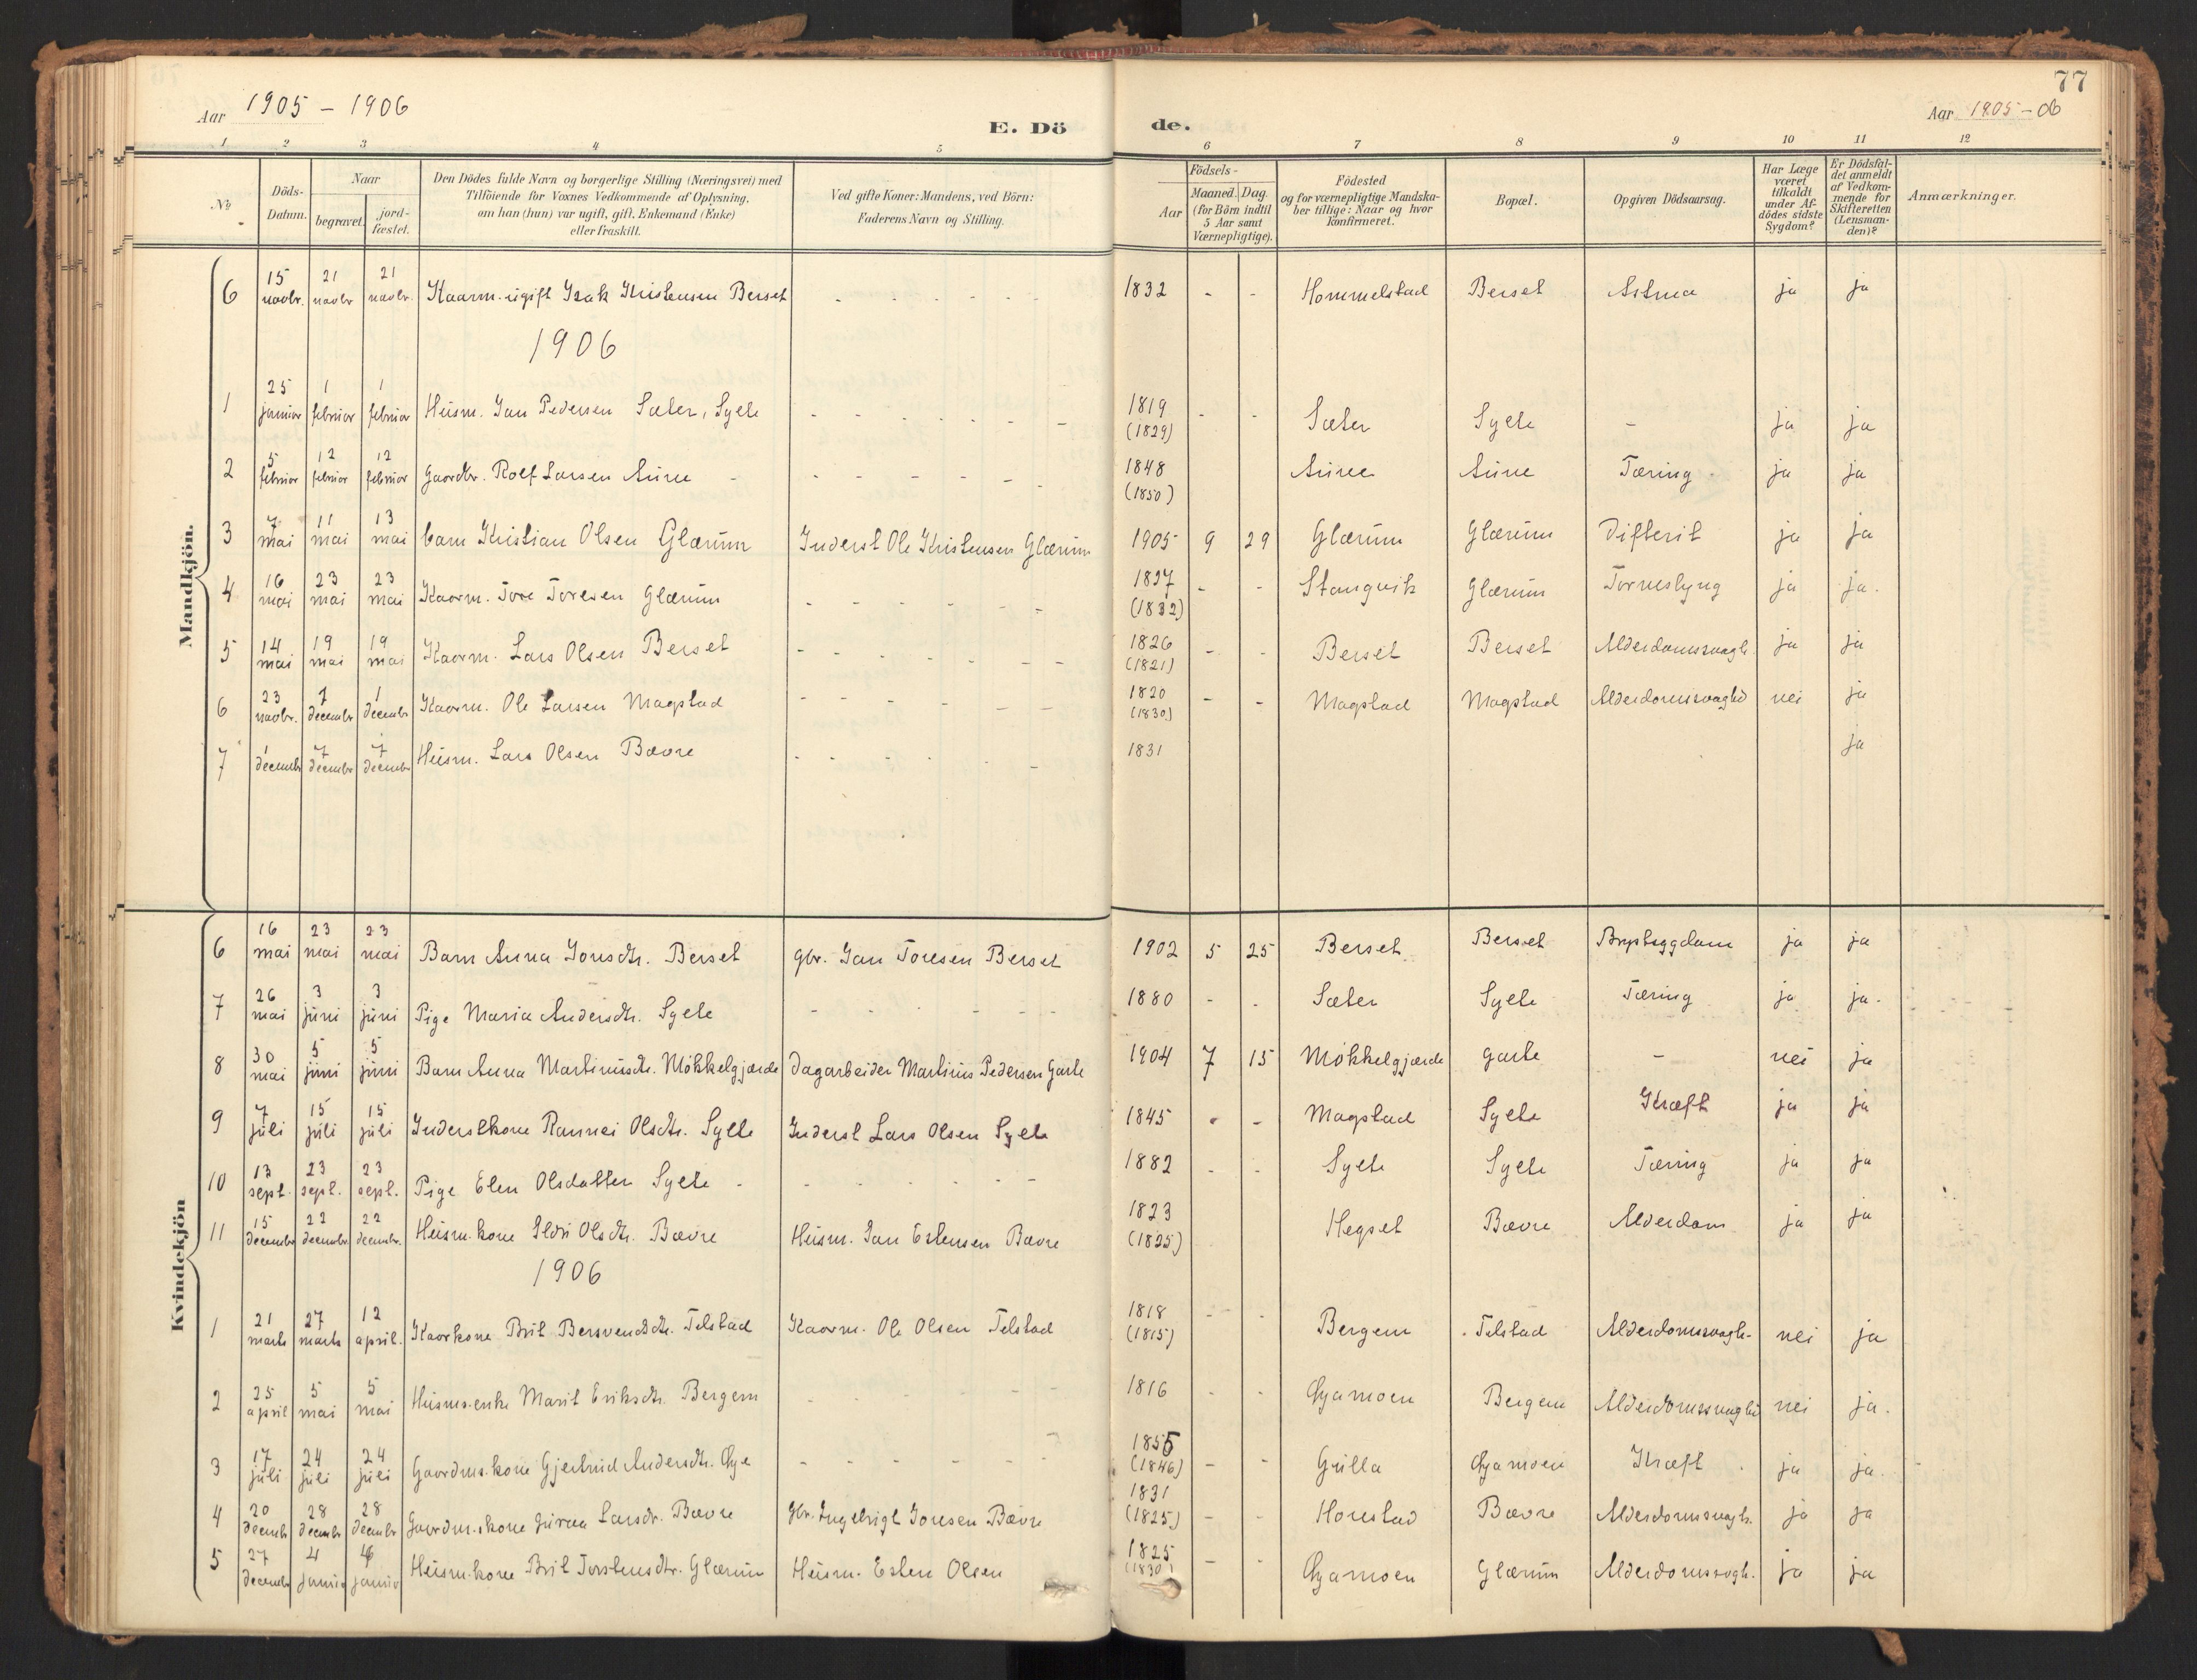 77
Aar 1905 - 1906
E. Dö
de.
Aar 1905 - 06
1 2 3 4 5 6 7 8 9 10 11 12
No
Döds-Datum.
Naar
begravet.
jord-fæstet.
Den Dödes fulde Navn og borgerlige Stilling (Næringsvei) med
Tilföiende for Voxnes Vedkommende af Oplysning,
om han (hun) var ugift, gift, Enkemand (Enke)
eller fraskilt.
Ved gifte Koner: Mandens, ved Börn:
Faderens Navn og Stilling.
Födsels-
Aar
Maaned. Dag.
(for Börn indtil
5 Aar samt
Værnepligtige).
Födested
og for værnepligtige Mandska-
ber tillige: Naar og hvor
konfirmeret.
Bopæl.
Opgiven Dödsaarsag.
Har Læge
været
tilkaldt
under Af-
dödes sidste
Sygdom?
Er Dödsfal-
det anmeldt
af Vedkom-
mende for
Skifteretten
(Lensman-
den)?
Anmærkninger.
Mandkjön.
6 15 novbr. 21 novbr 21 novbr. Kaarm. ugift Isak Kristensen Berset - - - - - - 1832 - - Hommelstad Berset Astma ja ja
1906
1 25 januar 1 februar 1 februar Husm. Jan Pedersen Sæter, Sylte - - - - - - 1819 (1829) - - Sæter Sylte - ja ja
2 5 februar 12 februar 12 februar Gaardbr. Rolf Larsen Aune - - - - - - - 1848 (1850) Aune Aune Tæring. ja ja
3 7 mai 11 mai 13 mai barn Kristian Olsen Glærum Inderst Ole Kristensen Glærum 1905 9 29 Glærum Glærum Difterit ja ja
4 16 mai 23 mai 23 mai Kaarm. Tore Toresen Glærum - - - - - - 1827 (1832) - - Stangvik Glærum ja ja.
5 14 mai 19 mai 19 mai Kaarm. Lars Olsen Berset - - - - - - - 1826 (1821) - - Berset Berset Alderdomssvagh. ja ja
6 23 novbr. 1 decembr 1 decembr Kaarm. Ole Larsen Magstad - - - - - - 1820 (1830) - - Magstad Magstad Alderdomssvaghed nei ja
7 1 decembr 7 decembr 7 decembr Husm. Lars Olsen Bævre - - - - - - 1831 ja
Kvindekjön
6 16 mai 23 mai 23 mai Barn Anna Jonsdtr. Berset gbr. Jan Toresen Berset 1902 5 25 Berset Berset ja ja
7 26 mai 3 juni 3 juni Pige Maria Andersdtr. Sylte - - - - - - 1880 - - Sæter Sylte Tæring ja ja.
8 30 mai 5 juni 5 juni Barn Anna Martinusdtr. Mökkelgjærde Dagarbeider Martinus Pedersen Garte 1904 7 15 Mökkelgjærde Garte - nei ja
9 7 juli 15 juli 15 juli Inderstkone Rannei Olsdtr. Sylte Inderst Lars Olsen Sylte 1845 - - Magstad Sylte Kræft ja ja
10 13 sept. 23 sept. 23 sept. Pige Elen Olsdatter Sylte - - - - - - - 1882 - - Sylte Sylte Tæring ja ja
11 15 decembr 22 decembr. 22 decembr. Husm. kone Sldri Olsdtr. Bævre Husm. Jan Estensen Bævre 1823 (1825) Hegset Bævre Alderdom ja ja
1906
1 21 marts 27 marts 12 april. Kaarkone Brit Bersvendsdtr. Telstad Kaarm. Ole Olsen Telstad 1818 (1815) - - Bergem Telstad Alderdomssvagh. nei ja
2 25 april 5 mai 5 mai Husms.enke Marit Eriksdtr. Bergem - - - - - 1816 - - Øyamoen Bergem Alderdomssvaghed nei ja.
3 17 juli 24 juli 24 juli Gaardms.kone Gjertrud Andersdtr. Øye - - - - - - 1855 (1846) - - Grilla Øyamoen Kræft ja ja.
4 20 decembr 28 decembr 28 decembr Gaardm.skone Guroa Larsdr. Bævre gbr. Ingebrigt Jonsen Bævre 1831 (1825) - - Honstad Bævre Alderdomssvagh. ja ja
5 27 decembr 4 januar 4 januar Husm.kone Brit Torstensdtr. Glærum Husm. Esten Olsen 1825 (1830) - - Øyamoen Glærum Alderdomssvagh. ja ja